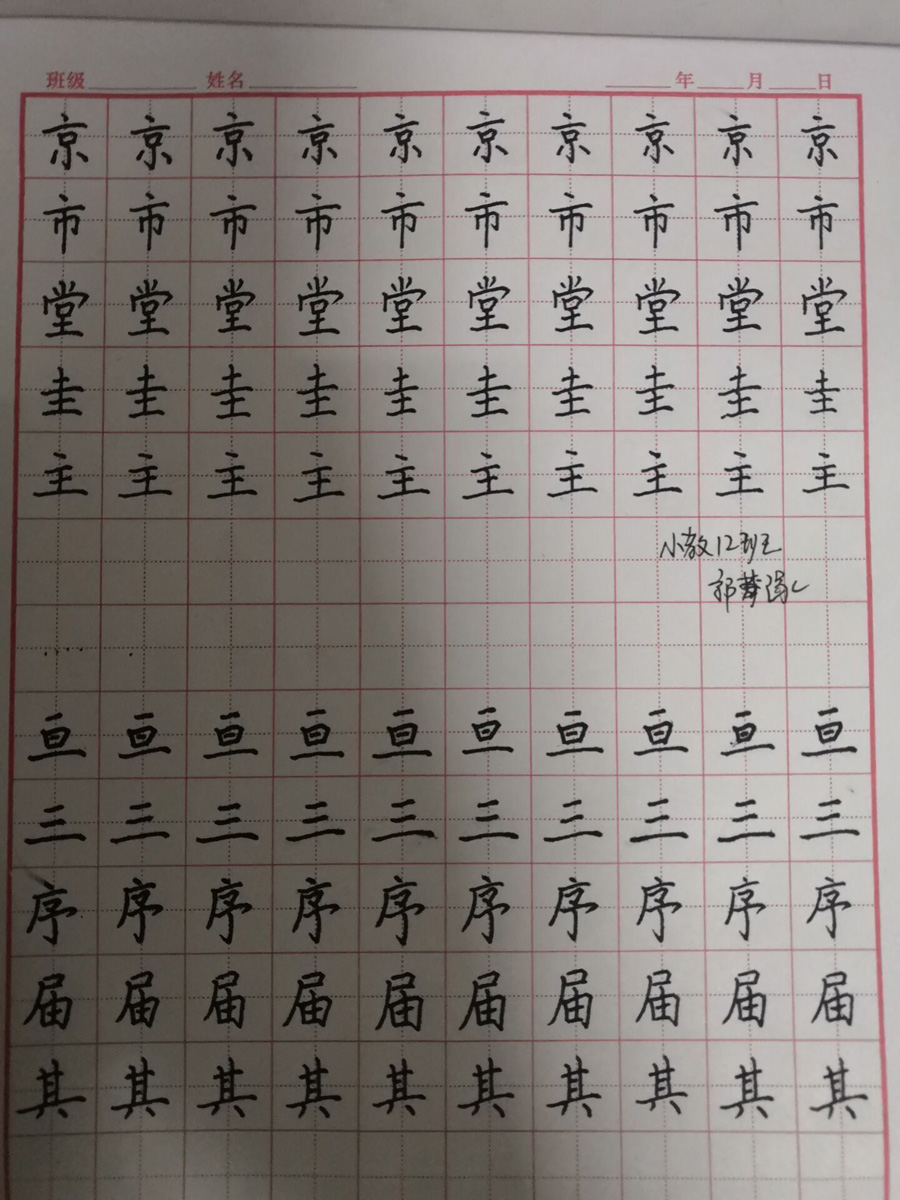 班级 姓名 年 月 日
京京京京京京京京京京
市市市市市市市市市市
堂堂堂堂堂堂堂堂堂堂
圭圭圭圭圭圭圭圭圭圭
主主主主主主主主主主
小教12班
郭梦
亘亘亘亘亘亘亘亘亘亘
三三三三三三三三三三
序序序序序序序序序序
届届届届届届届届届届
其其其其其其其其其其